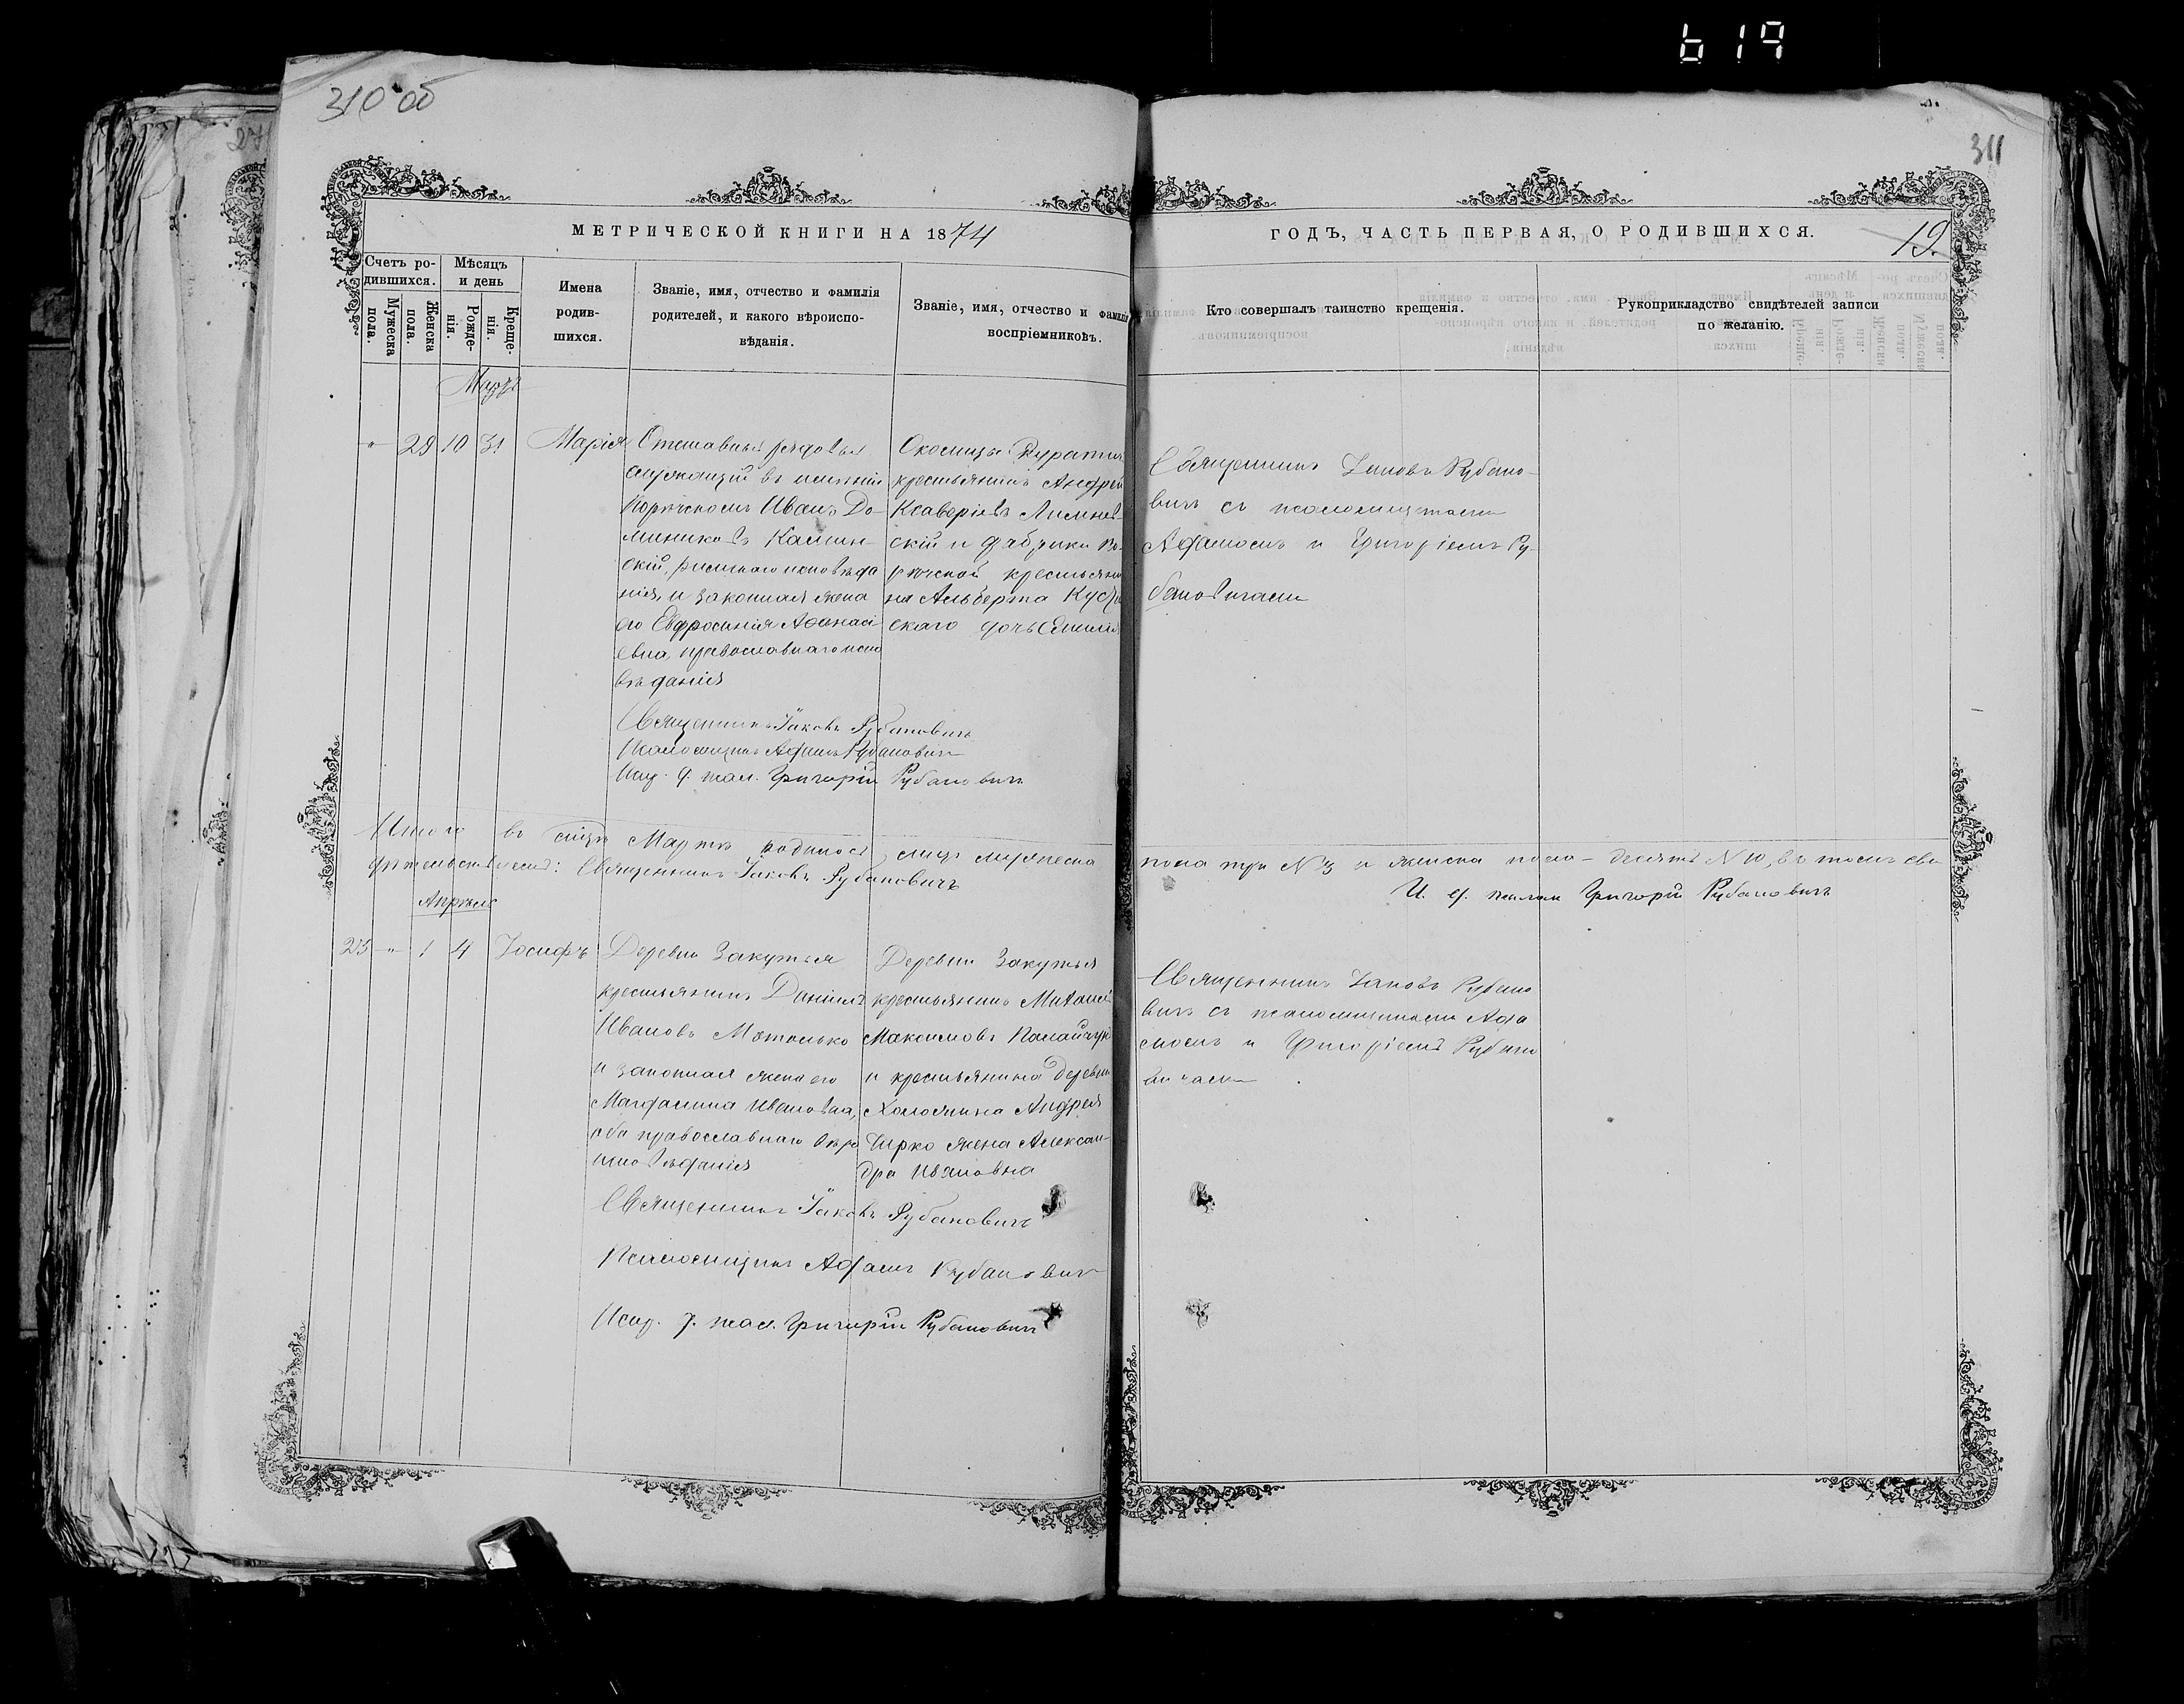 619
310 об
311
МЕТРИЧЕСКОЙ КНИГИ НА 1874
ГОДЪ, ЧАСТЬ ПЕРВАЯ, О РОДИВШИХСЯ.
19.
Счетъ родившихся.
Мѣсяцъ и день
Мужеска пола.
Женска пола.
Рожденія.
Крещенія.
Имена родившихся.
Званіе, имя, отчество и фамилія
родителей, и какого вѣроиспо-
вѣданія.
Званіе, имя, отчество и фамилія
воспріемниковъ.
Кто совершалъ таинство крещенія.
Рукоприкладство свидѣтелей записи
по желанію.
Мартъ
" 29 10 31 Марія
рядовый
служащій въ имѣніи
Иванъ До-
миниковъ
скій, римскаго исповѣда
нія, и законная жена
его Евфросинія Афанасі
евна, православнаго испо
вѣданія
крестьянинъ Андрей
Ксаверіевъ
скій и фабрики
крестьяни
на Альберта
скаго дочь Емилія
Священникъ Іаковъ Рубано-
вичъ съ псаломщиками
Адамомъ и Григоріемъ Ру-
бановичами
Священникъ Іаковъ Рубановичъ
Псаломщикъ Адамъ Рубановичъ
Исп. д. псал. Григорій Рубановичъ
Итого въ мцѣ Мартѣ родилось мужеска
пола три №3 и женска пола - десять №10, въ томъ сви
дѣтельствуемъ: Священникъ Іаковъ Рубановичъ
И. д. псалом Григорій Рубановичъ
Апрѣль
23 " 1 4 Іосифъ
Деревни Закутья
крестьянинъ Даніилъ
Ивановъ
и законная жена его
Магдалина Ивановна,
оба православнаго вѣро
исповѣданія
Деревни Закутья
крестьянинъ Михаилъ
Максимовъ
и крестьянина деревни
Холопина Андрея
Чирко жена Алексан-
дра Ивановна
Священникъ Іаковъ Рубано
вичъ съ псаломщиками Ада
момъ и Григоріемъ Рубано
вичами
Священникъ Іаковъ Рубановичъ
Псаломщикъ Адамъ Рубановичъ
Исп. д. псал. Григорій Рубановичъ